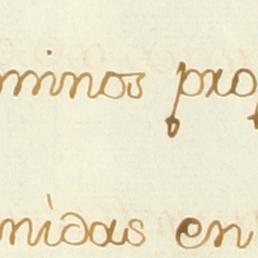 minos pro
nidas en